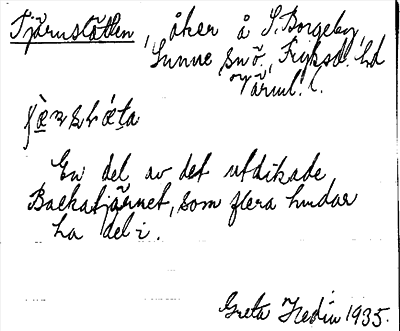 Tjärnslåtten, åker å S. Borgeby,
Sunne snö, Fryksd. hd
Värml. l.
En del av det utdikade
Backatjärnet, som flera hudar
ha del i.
Greta Hedin 1935.